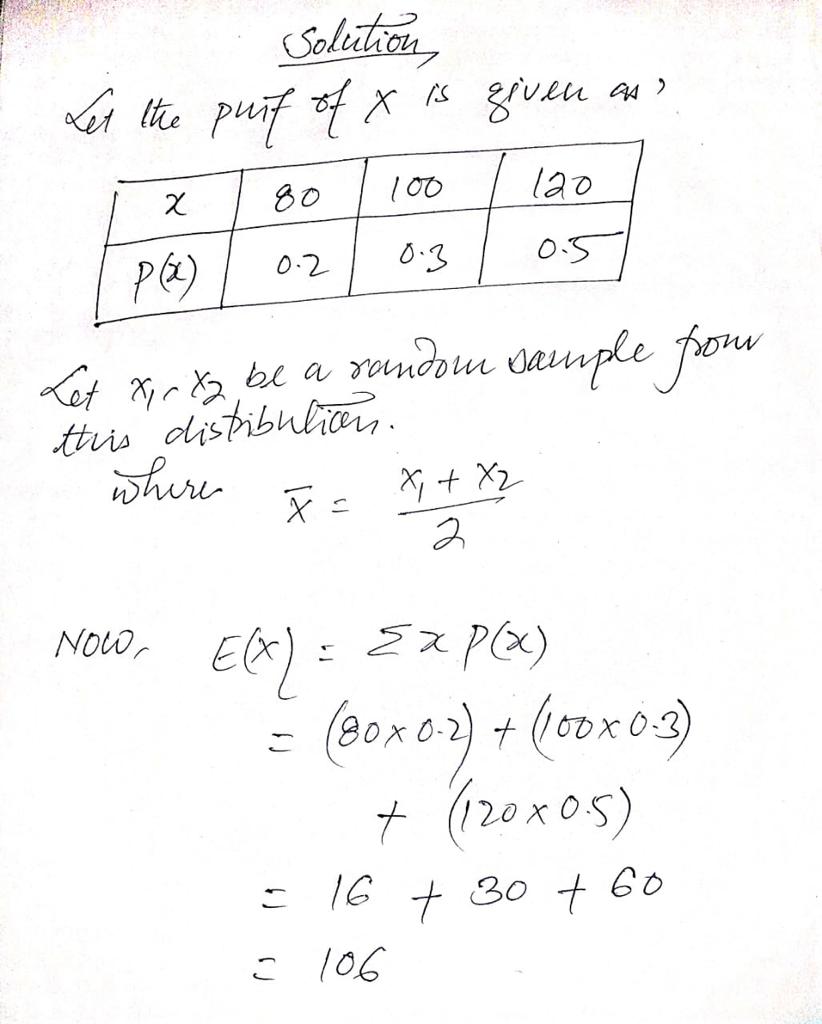 Solution,
Let the pmf of X is given as,
x 80 100 120
P(x) 0.2 0.3 0.5
Let X₁, X₂ be a random sample from
this distribution.
where X̄ = (X₁ + X₂)/2
NOW, E(X) = Σ x P(x)
= (80×0.2) + (100×0.3)
+ (120×0.5)
= 16 + 30 + 60
= 106